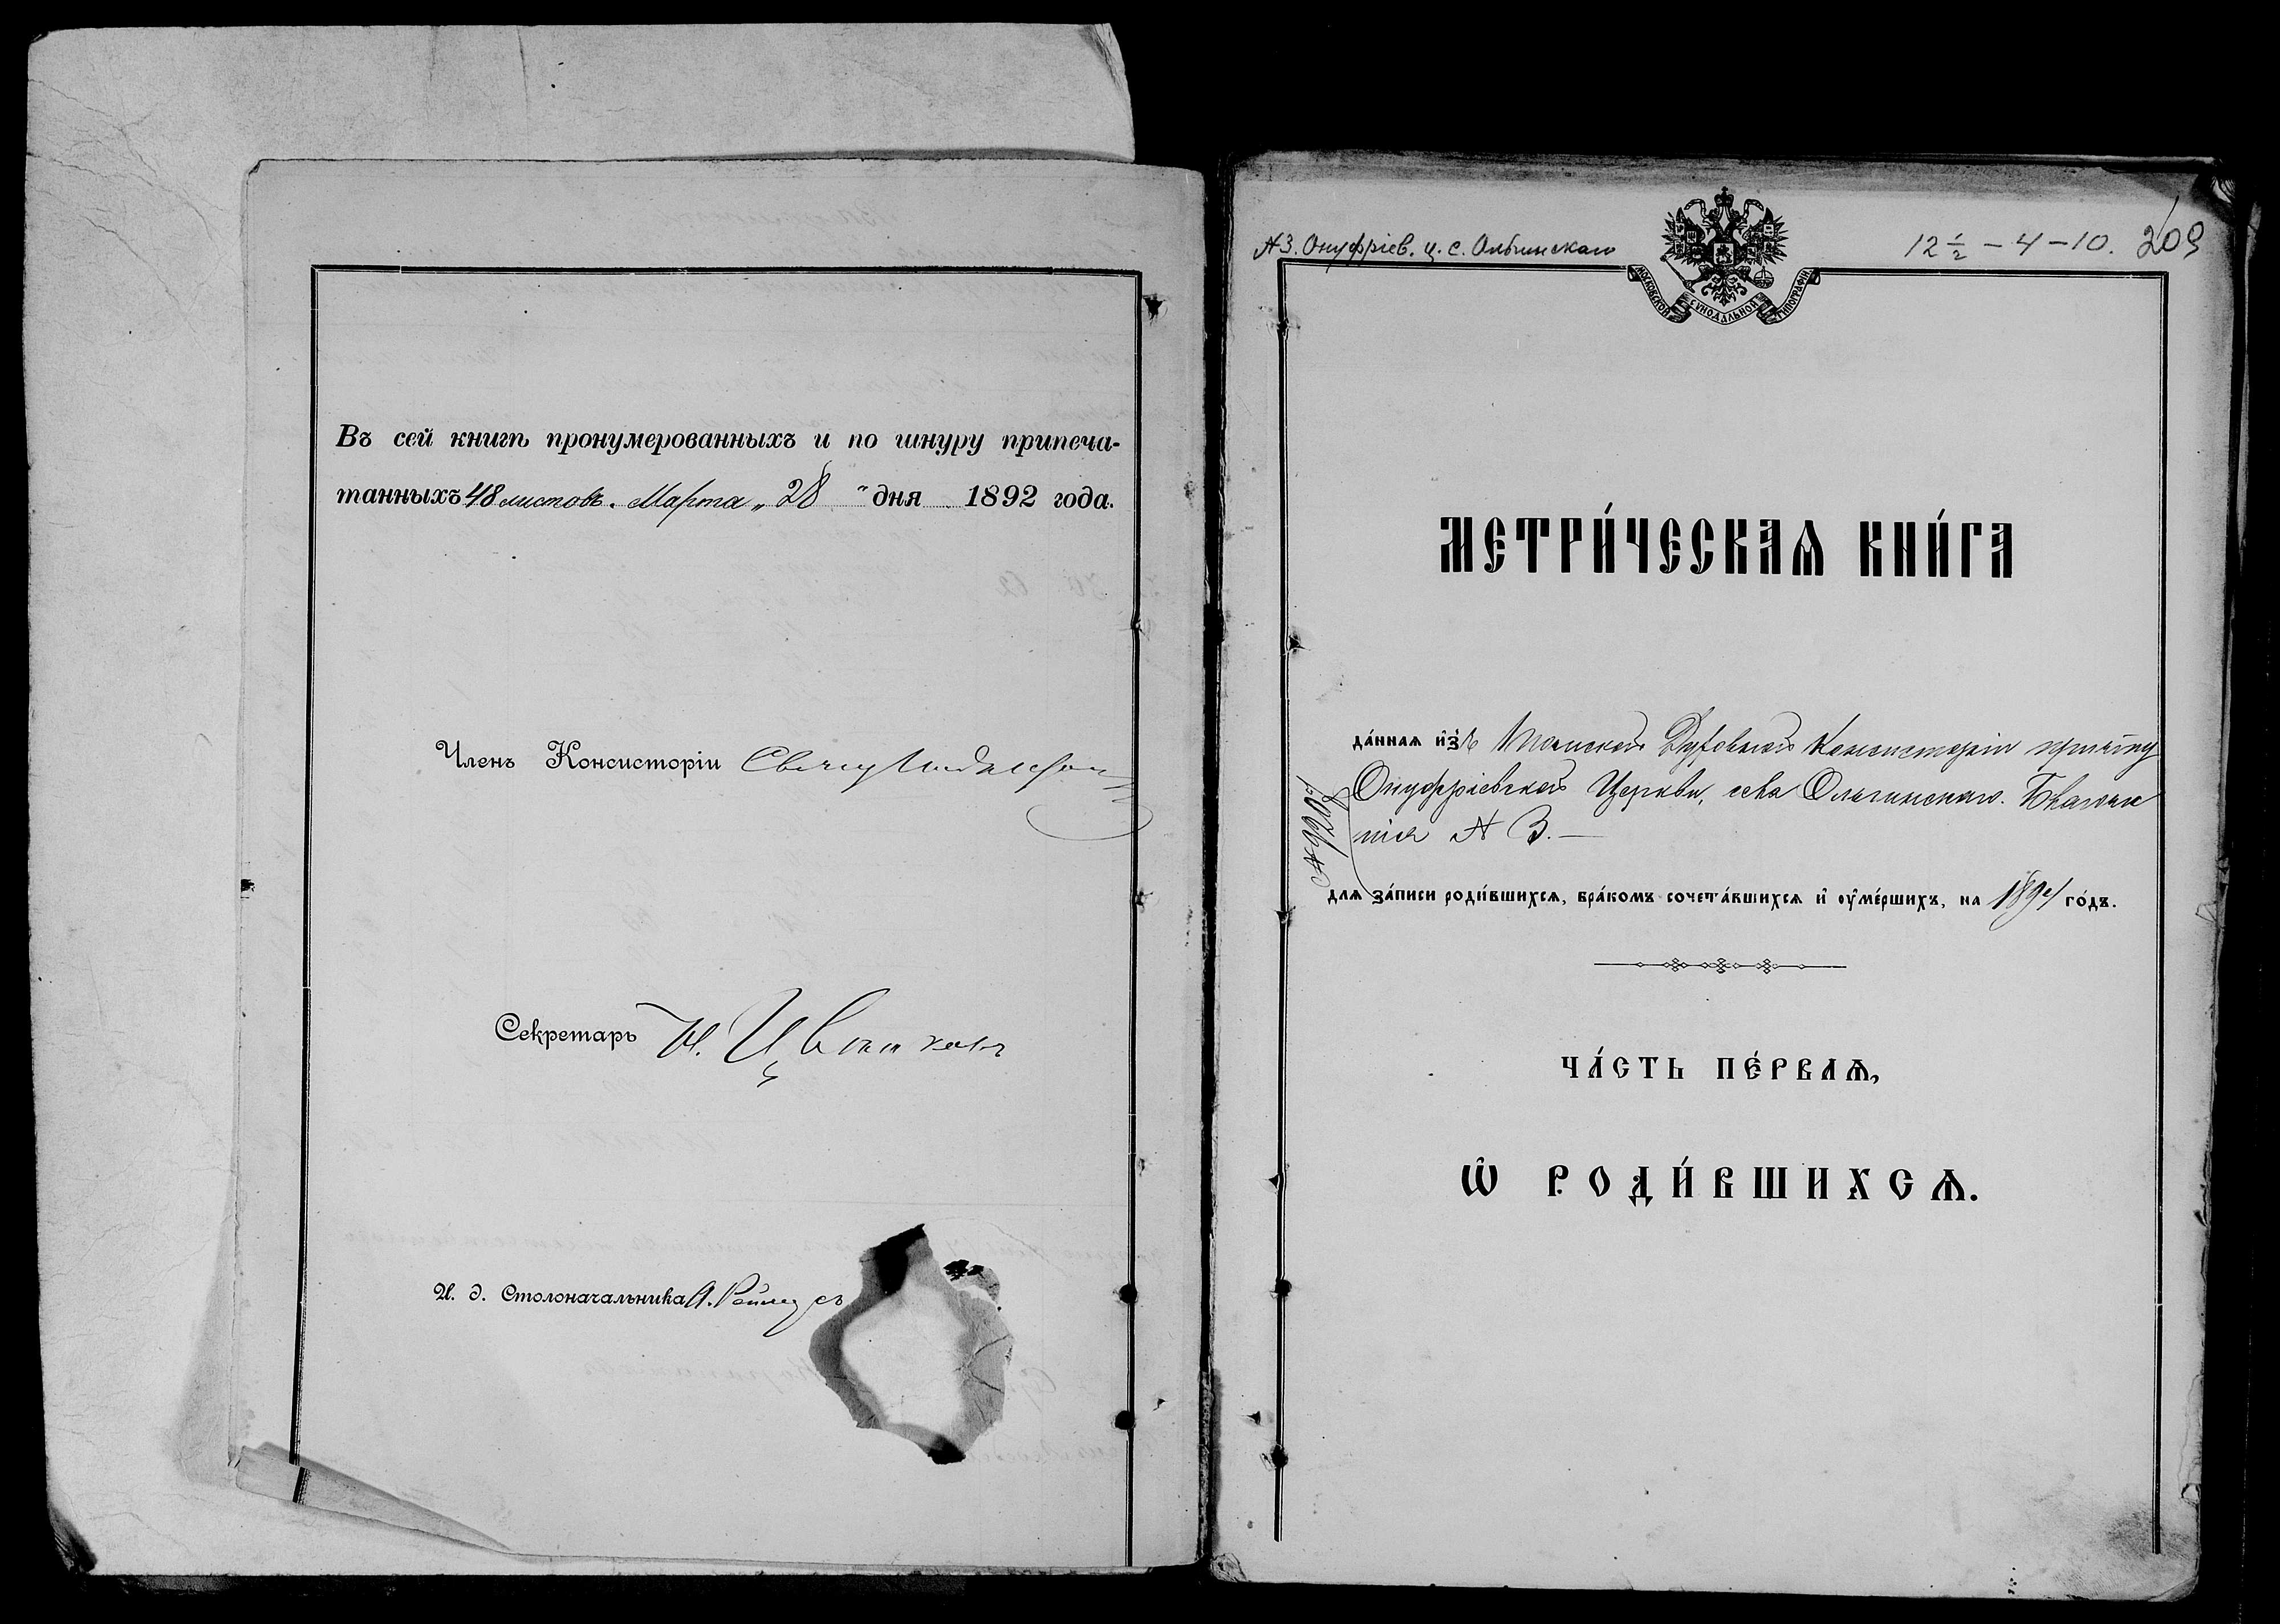 Въ сей книгѣ пронумерованныхъ и по шнуру припеча-
танныхъ 48 листовъ. Марта „ 28 " дня 1892 года.
Членъ Консисторіи
Секретарь
И. д. Столоначальника А.
№ 3. Онуфріев. ц. с. Ольгинскаго
12 1/2 – 4 – 10. 209
МОСКОВСКОЙ СѴНОДАЛЬНОЙ ТИПОГРАФІИ
МЕТРИ́ЧЕСКАѦ КНИ́ГА
да́ннаѧ и҆зъ Томской Духовной Консисторіи причту
Онуфріевской Церкви, села Ольгинскаго. Благочи
нія № 3. —
длѧ за́писи роди́вшихсѧ, бра́комъ сочета́вшихсѧ и҆ ᲂу҆ме́ршихъ, на 189 го́дъ.
ЧА́СТЬ ПЕ́РВАѦ,
Ѡ҆ РОДИ́ВШИХСѦ.